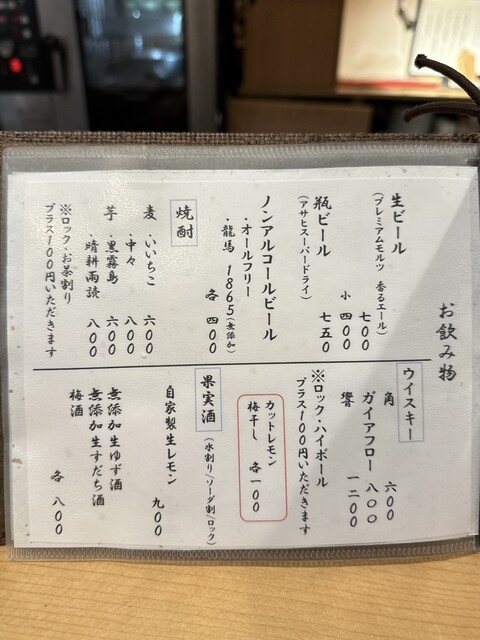 お飲み物
生ビール
(プレミアムモルツ 香るエール)
七〇〇
小 四〇〇
瓶ビール
(アサヒスーパードライ)
七五〇
ノンアルコールビール
・オールフリー
・龍馬1865(無添加)
各 四〇〇
焼酎
麦・いいちこ 六〇〇
・中々 八〇〇
芋・黒霧島 六〇〇
・晴耕雨読 八〇〇
※ロック・お茶割り
プラス100円いただきます
ウイスキー
角 六〇〇
ガイアフロー 八〇〇
響 一二〇〇
※ロック・ハイボール
プラス100円いただきます
カットレモン
梅干し 各一〇〇
果実酒
(水割り/ソーダ割/ロック)
自家製生レモン 九〇〇
無添加生ゆず酒
無添加生すだち酒
梅酒
各 八〇〇